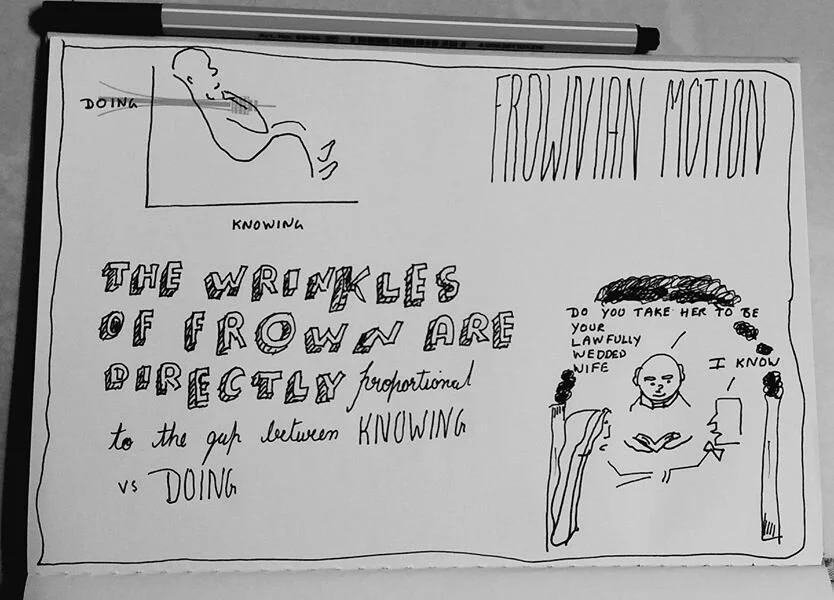 DOING
KNOWING
FROWNIAN MOTION
THE WRINKLES
OF FROWN ARE
DIRECTLY proportional
to the gap between KNOWING
vs DOING
DO YOU TAKE HER TO BE
YOUR
LAWFULLY
WEDDED
WIFE
I KNOW